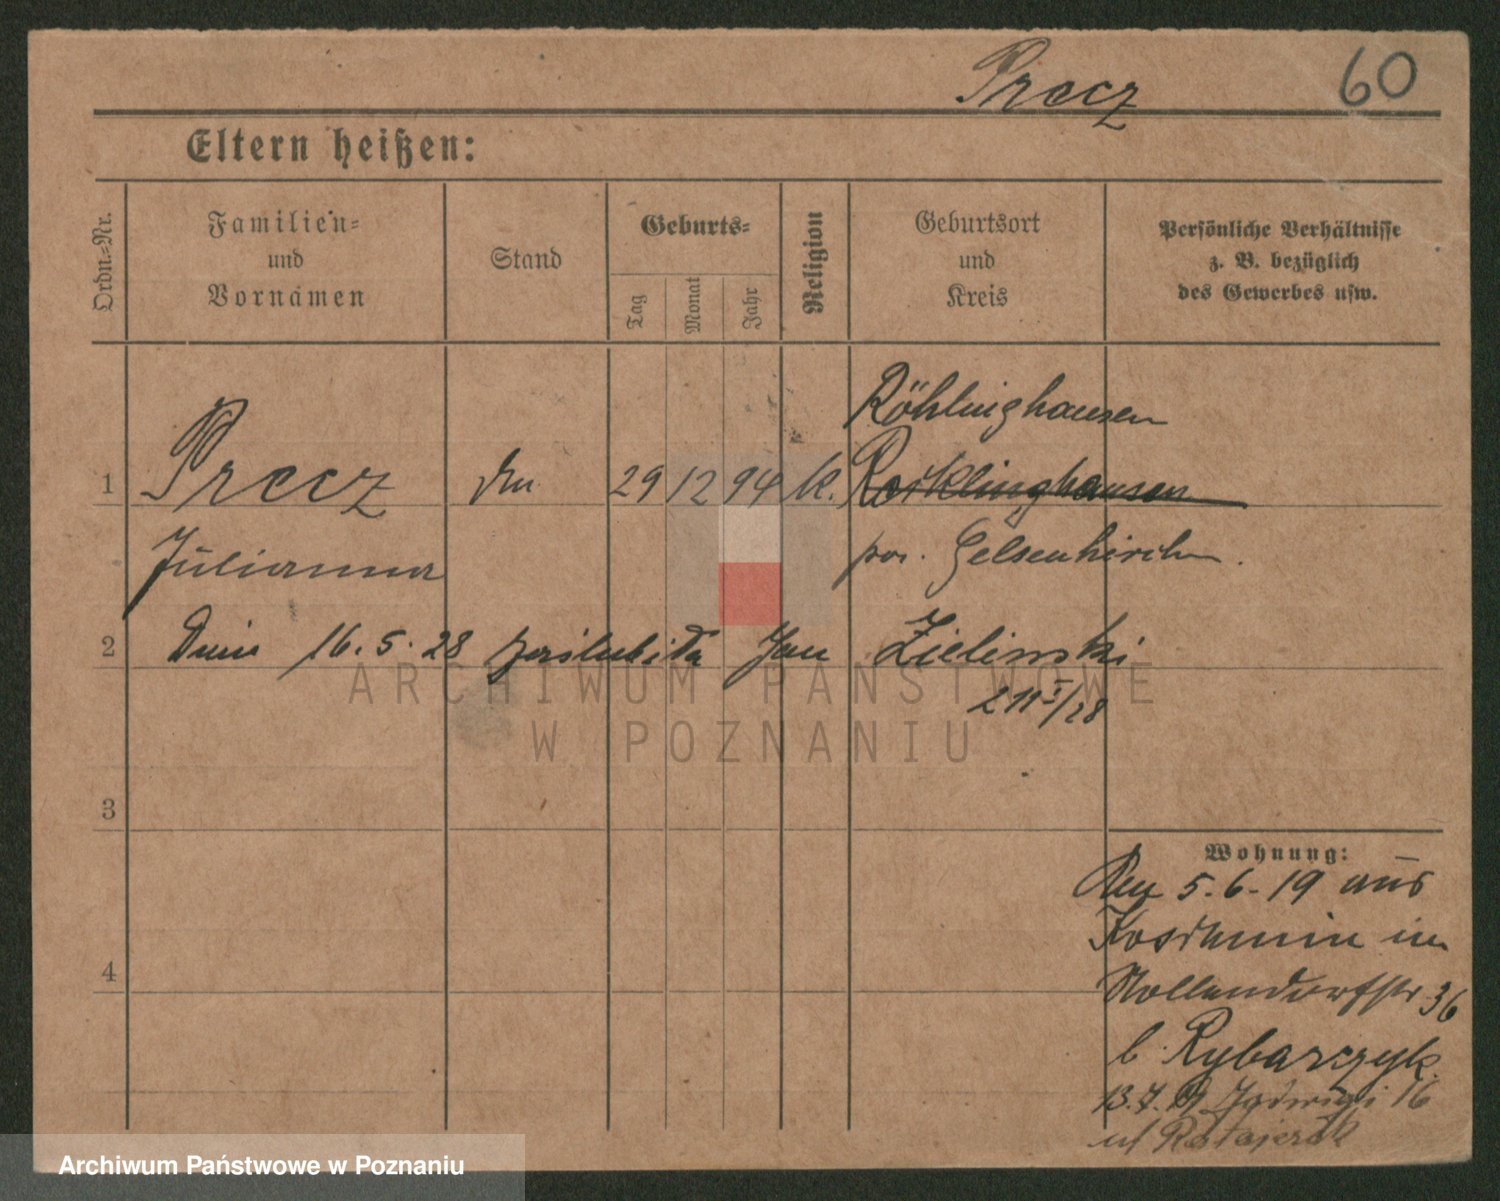 Precz
60
Eltern heißen:
Ordn.-Nr.
Familien-
und
Vornamen
Stand
Geburts-
Tag
Monat
Jahr
Religion
Geburtsort
und
Kreis
Persönliche Verhältnisse
z. B. bezüglich
des Gewerbes usw.
Röhlinghausen
1 Precz 29 12 94 k. Recklinghausen
Julianna pow. Gelsenkirchen.
2 Dnia 16.5.28 poślubiła Jan Zielinski
211 I/28
ARCHIWUM PAŃSTWOWE
W POZNANIU
3
Wohnung:
Den 5.6.19 aus
Koschmin in
4 Nollendorfstr 36
b. Rybarczyk
13.7. Jadwigi 16
Ratajczak
Archiwum Państwowe w Poznaniu